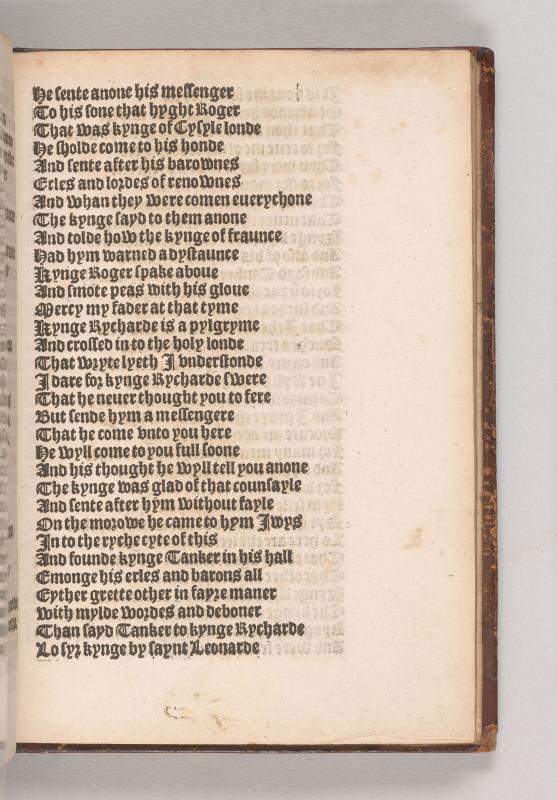 He sente anone his messenger
To his sone that hyght Roger
That was kynge of Cysyle londe
He sholde come to his honde
And sente after his barownes
Erles and lordes of renownes
And whan they were comen euerychone
The kynge sayd to them anone
And tolde how the kynge of fraunce
Had hym warned a dystaunce
Kynge Roger spake aboue
And smote peas with his gloue
Mercy my fader at that tyme
Kynge Rycharde is a pylgryme
And crossed in to the holy londe
That wryte lyeth I vnderstonde
I dare for kynge Rycharde swere
That he neuer thought you to fere
But sende hym a messengere
That he come vnto you here
He wyll come to you full soone
And his thought he wyll tell you anone
The kynge was glad of that counsayle
And sente after hym without fayle
On the morowe he came to hym Iwys
In to the ryche cyte of this
And founde kynge Tanker in his hall
Emonge his erles and barons all
Eyther grette other in fayre maner
With mylde wordes and deboner
Than sayd Tanker to kynge Rycharde
Lo syr kynge by saynt Leonarde